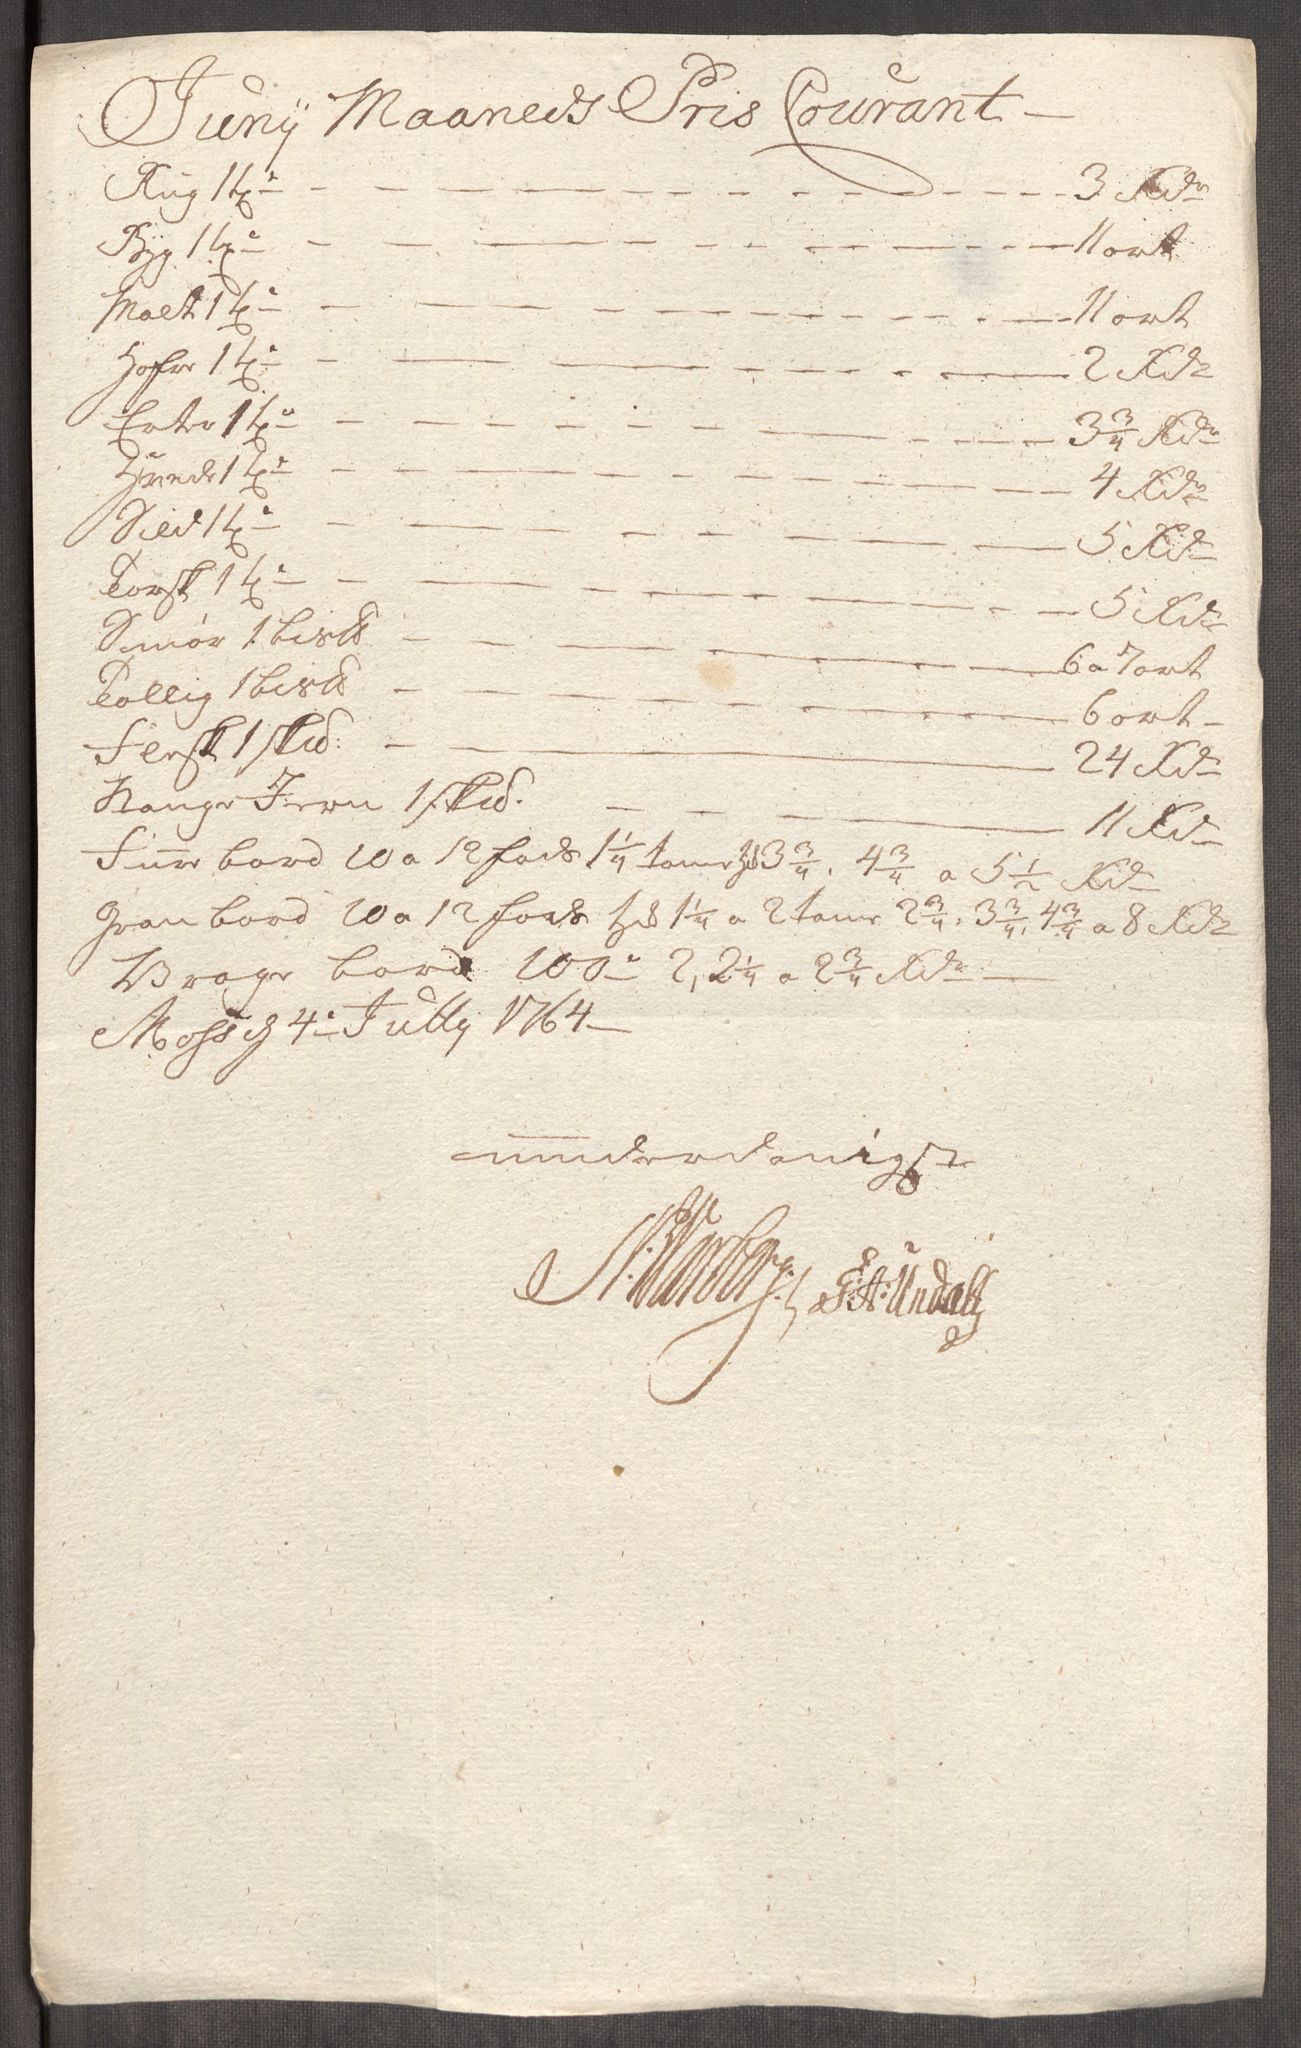 Junij Maaneds Pris Courant
Rug 1 tø 3 Rdr
Byg 1 tø 11 ort
Malt 1 tø 11 ort
Hafre 1 tø 2 Rdr
Erter 1 tø 3 3/4 Rdr
Hvede 1 tø 4 Rdr
Sild 1 tø 5 Rdr
Torsk 1 tø 5 Rdr
Smiör 1 bis℔ 6 a 7 ort
Tallig 1 bis℔ 6 ort
Flesk 1 sk℔: 24 Rdr
Stange Jern 1 sk℔. 11 Rdr
Fure bord 10 a 12 fods 1 1/4 tome 3 3/4. 4 3/4 a 5 1/2 Rdr
Gran bord 10 a 12 fods 1 1/4 a 2 tome 2 3/4. 3 3/4. 4 3/4 a 8 Rdr
Vrage bord 100 2, 2 1/4 a 2 3/4 Rdr
Moss d 4 Jully 1764
underdanigst
N: Warberg. F: A: Undall